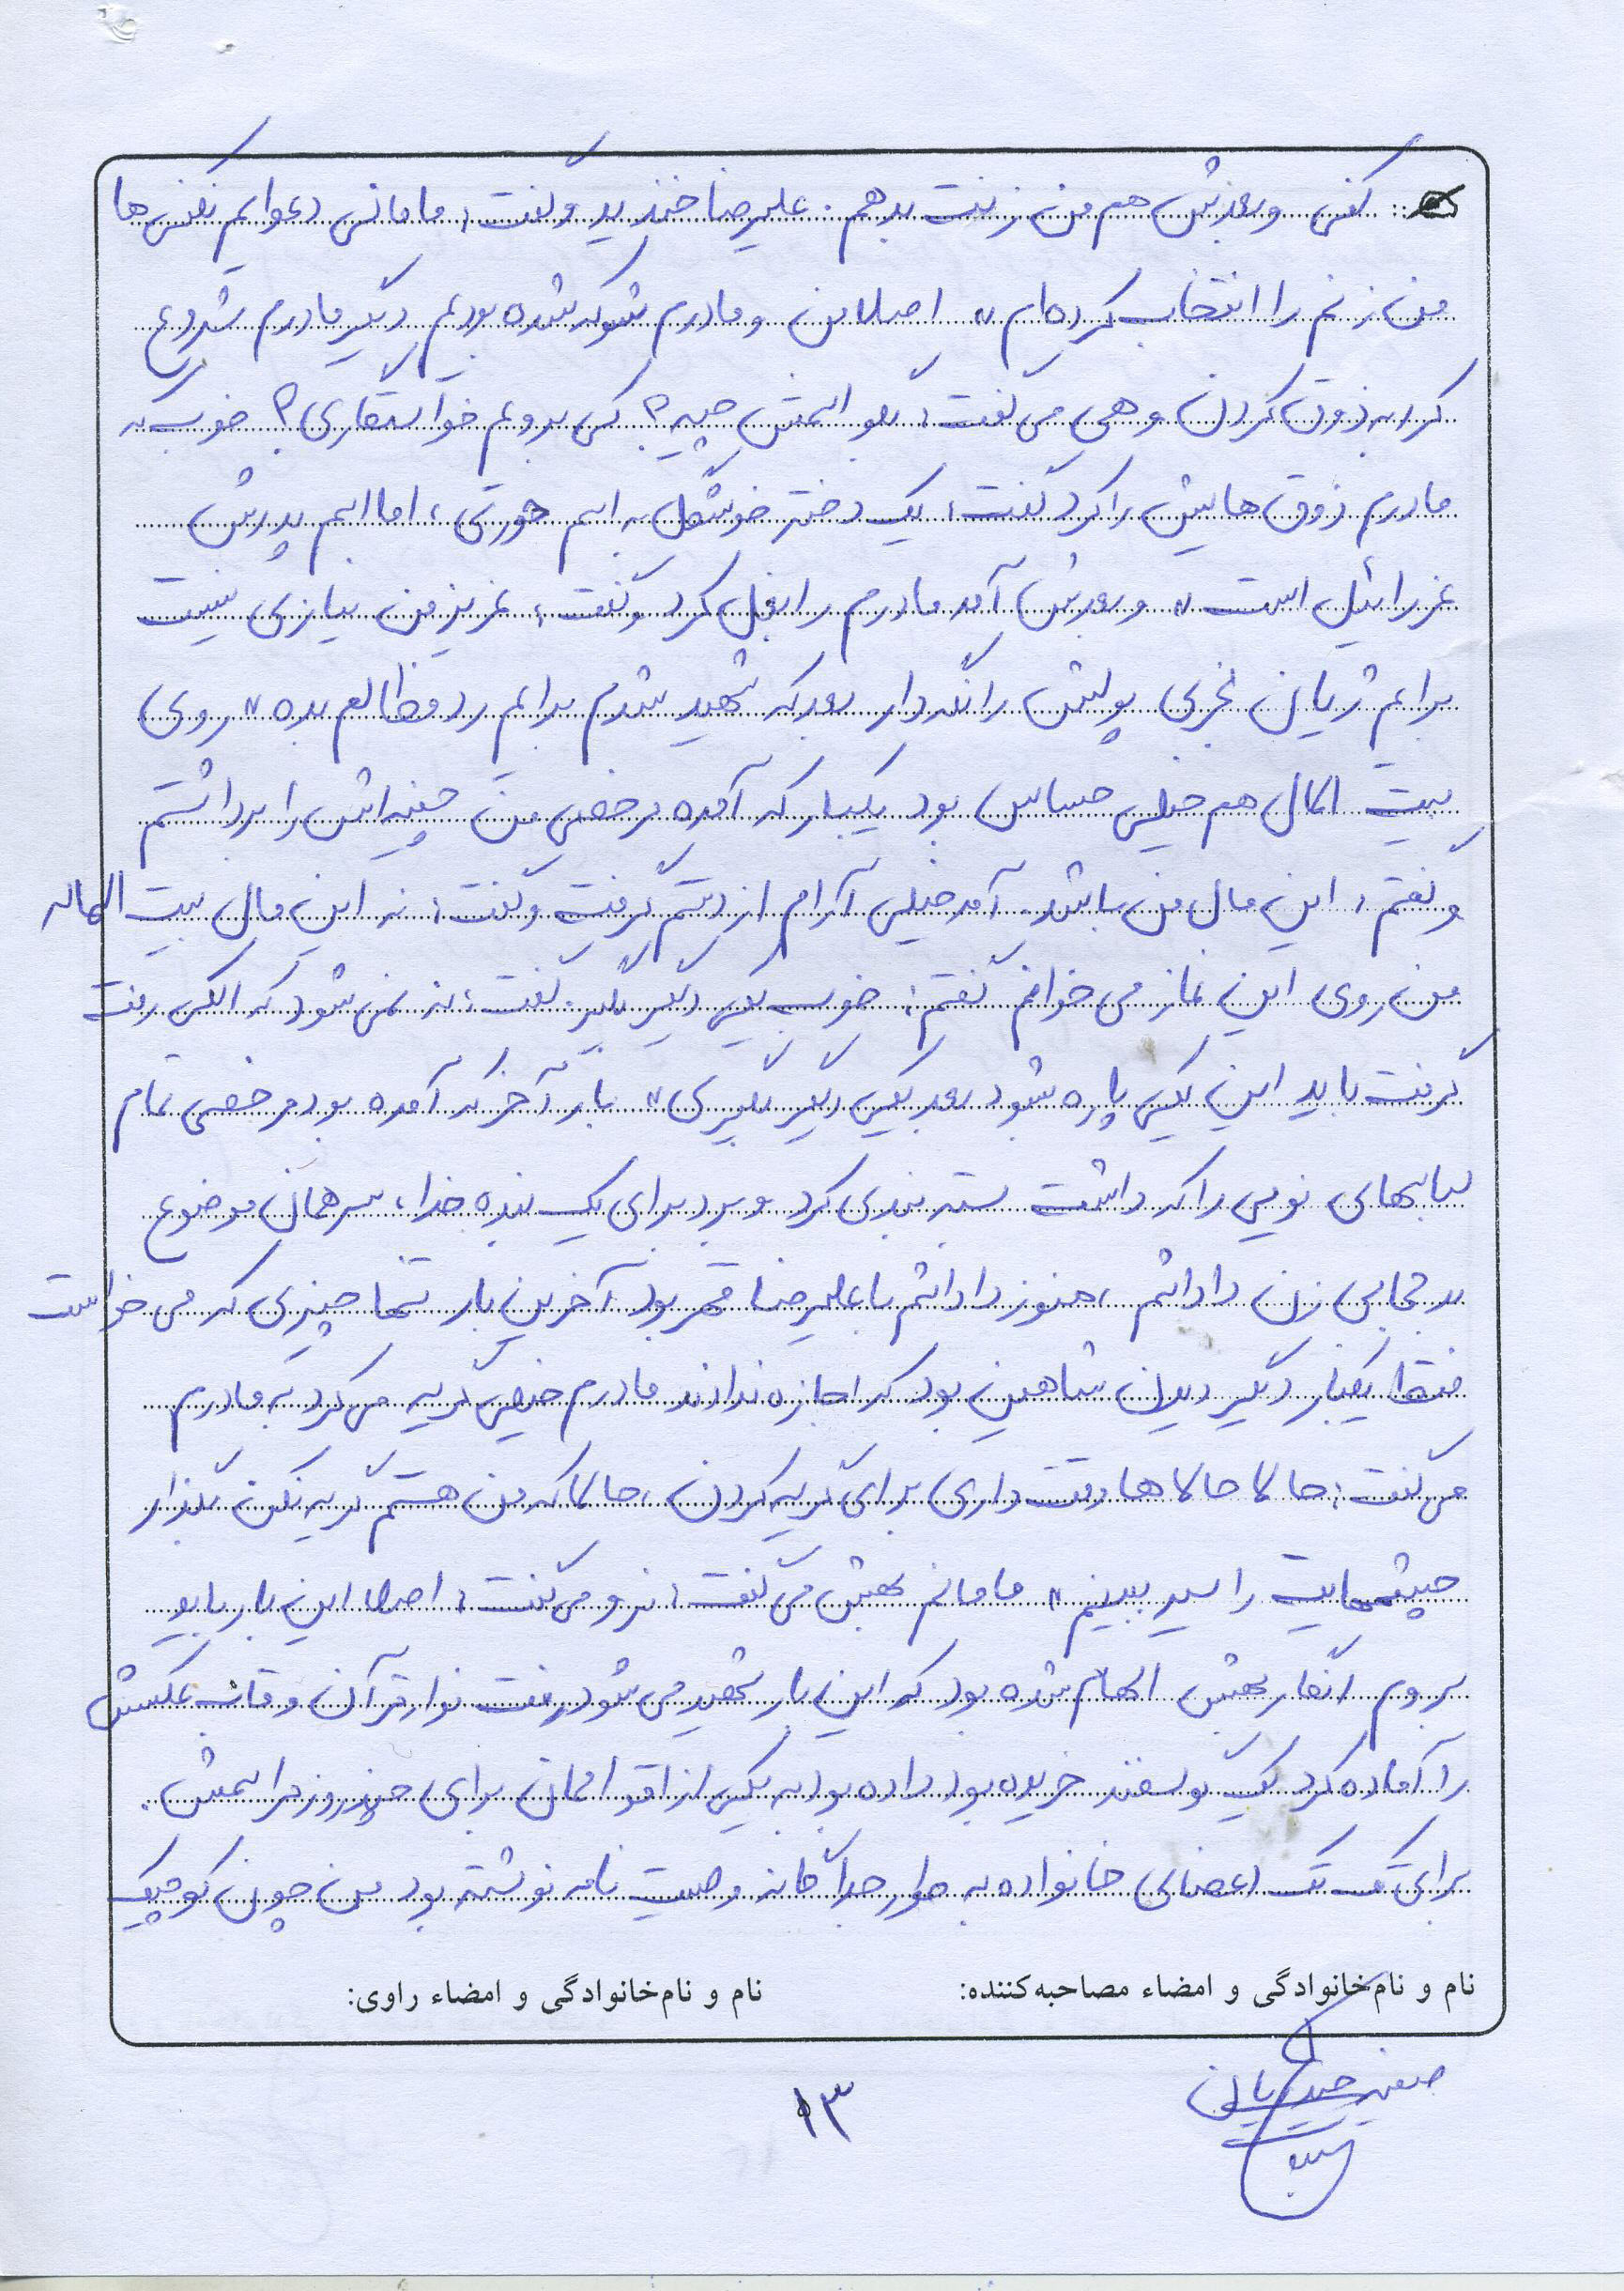 کنی و بعدش هم من زنت بدهم. علیرضا خندید و گفت: مامانی دعوایم نکنی ها
من زنم را انتخاب کرده ام» اصلا من و مادرم شوکه شده بودیم دیگر مادرم شروع
کرد به ذوق کردن و هی می گفت: بگو اسمش چیه؟ کی برویم خواستگاری؟ خوب که
مادرم ذوق هایش را کرد گفت: یک دختر خوشگل به اسم حوری، اما اسم پدرش
عزرائیل است» و بعدش آمد مادرم را بغل کرد و گفت: عزیز من نیازی نیست
برایم زیان نخری پولش را نگه دار بعد که شهید شدم برایم رد مظالم بده» روی
بیت المال هم خیلی حساس بود یکبار که آمده مرخصی من چفیه اش را برداشتم
و گفتم: این مال من باشد. آمد خیلی آرام از دستم گرفت و گفت: نه این مال بیت الماله
من روی این نماز می خوانم گفتم: خوب یکی دیگر بگیر. گفت: نه نمی شود که الکی رفت
گرفت باید این یکی پاره شود بعد یکی دیگر بگیری» بار آخر که آمده بود مرخصی تمام
لباسهای نویی را که داشت بسته بندی کرد و برد برای یک بنده خدا، سر همان موضوع
بد حجابی زن داداشم، هنوز داداشم با علیرضا قهر بود آخرین بار تنها چیزی که می خواست
فقط یکبار دیگر دیدن شاهین بود که اجازه ندادند مادرم خیلی گریه می کرد به مادرم
می گفت: حالا حالا ها وقت داری برای گریه کردن، حالا که من هستم گریه نکن بگذار
چشمهایت را سیر ببینم» مامانم بهش می گفت: نرو می گفت: اصلا این بار باید
بروم انگار بهش الهام شده بود که این بار شهید می شود رفت نوار قرآن و قاب عکسش
را آماده کرد یک گوسفند خریده بود داده بود به یکی از اقواممان برای چند روز مراسمش.
برای تک تک اعضای خانواده به طور جداگانه وصیت نامه نوشته بود من چون کوچیک
نام و نام‌خانوادگی و امضاء مصاحبه‌کننده: نام و نام‌خانوادگی و امضاء راوی:
حیدریان
۱۳